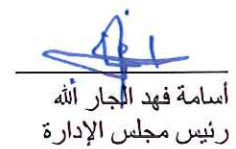 أسامة فهد الجار الله
رئيس مجلس الإدارة